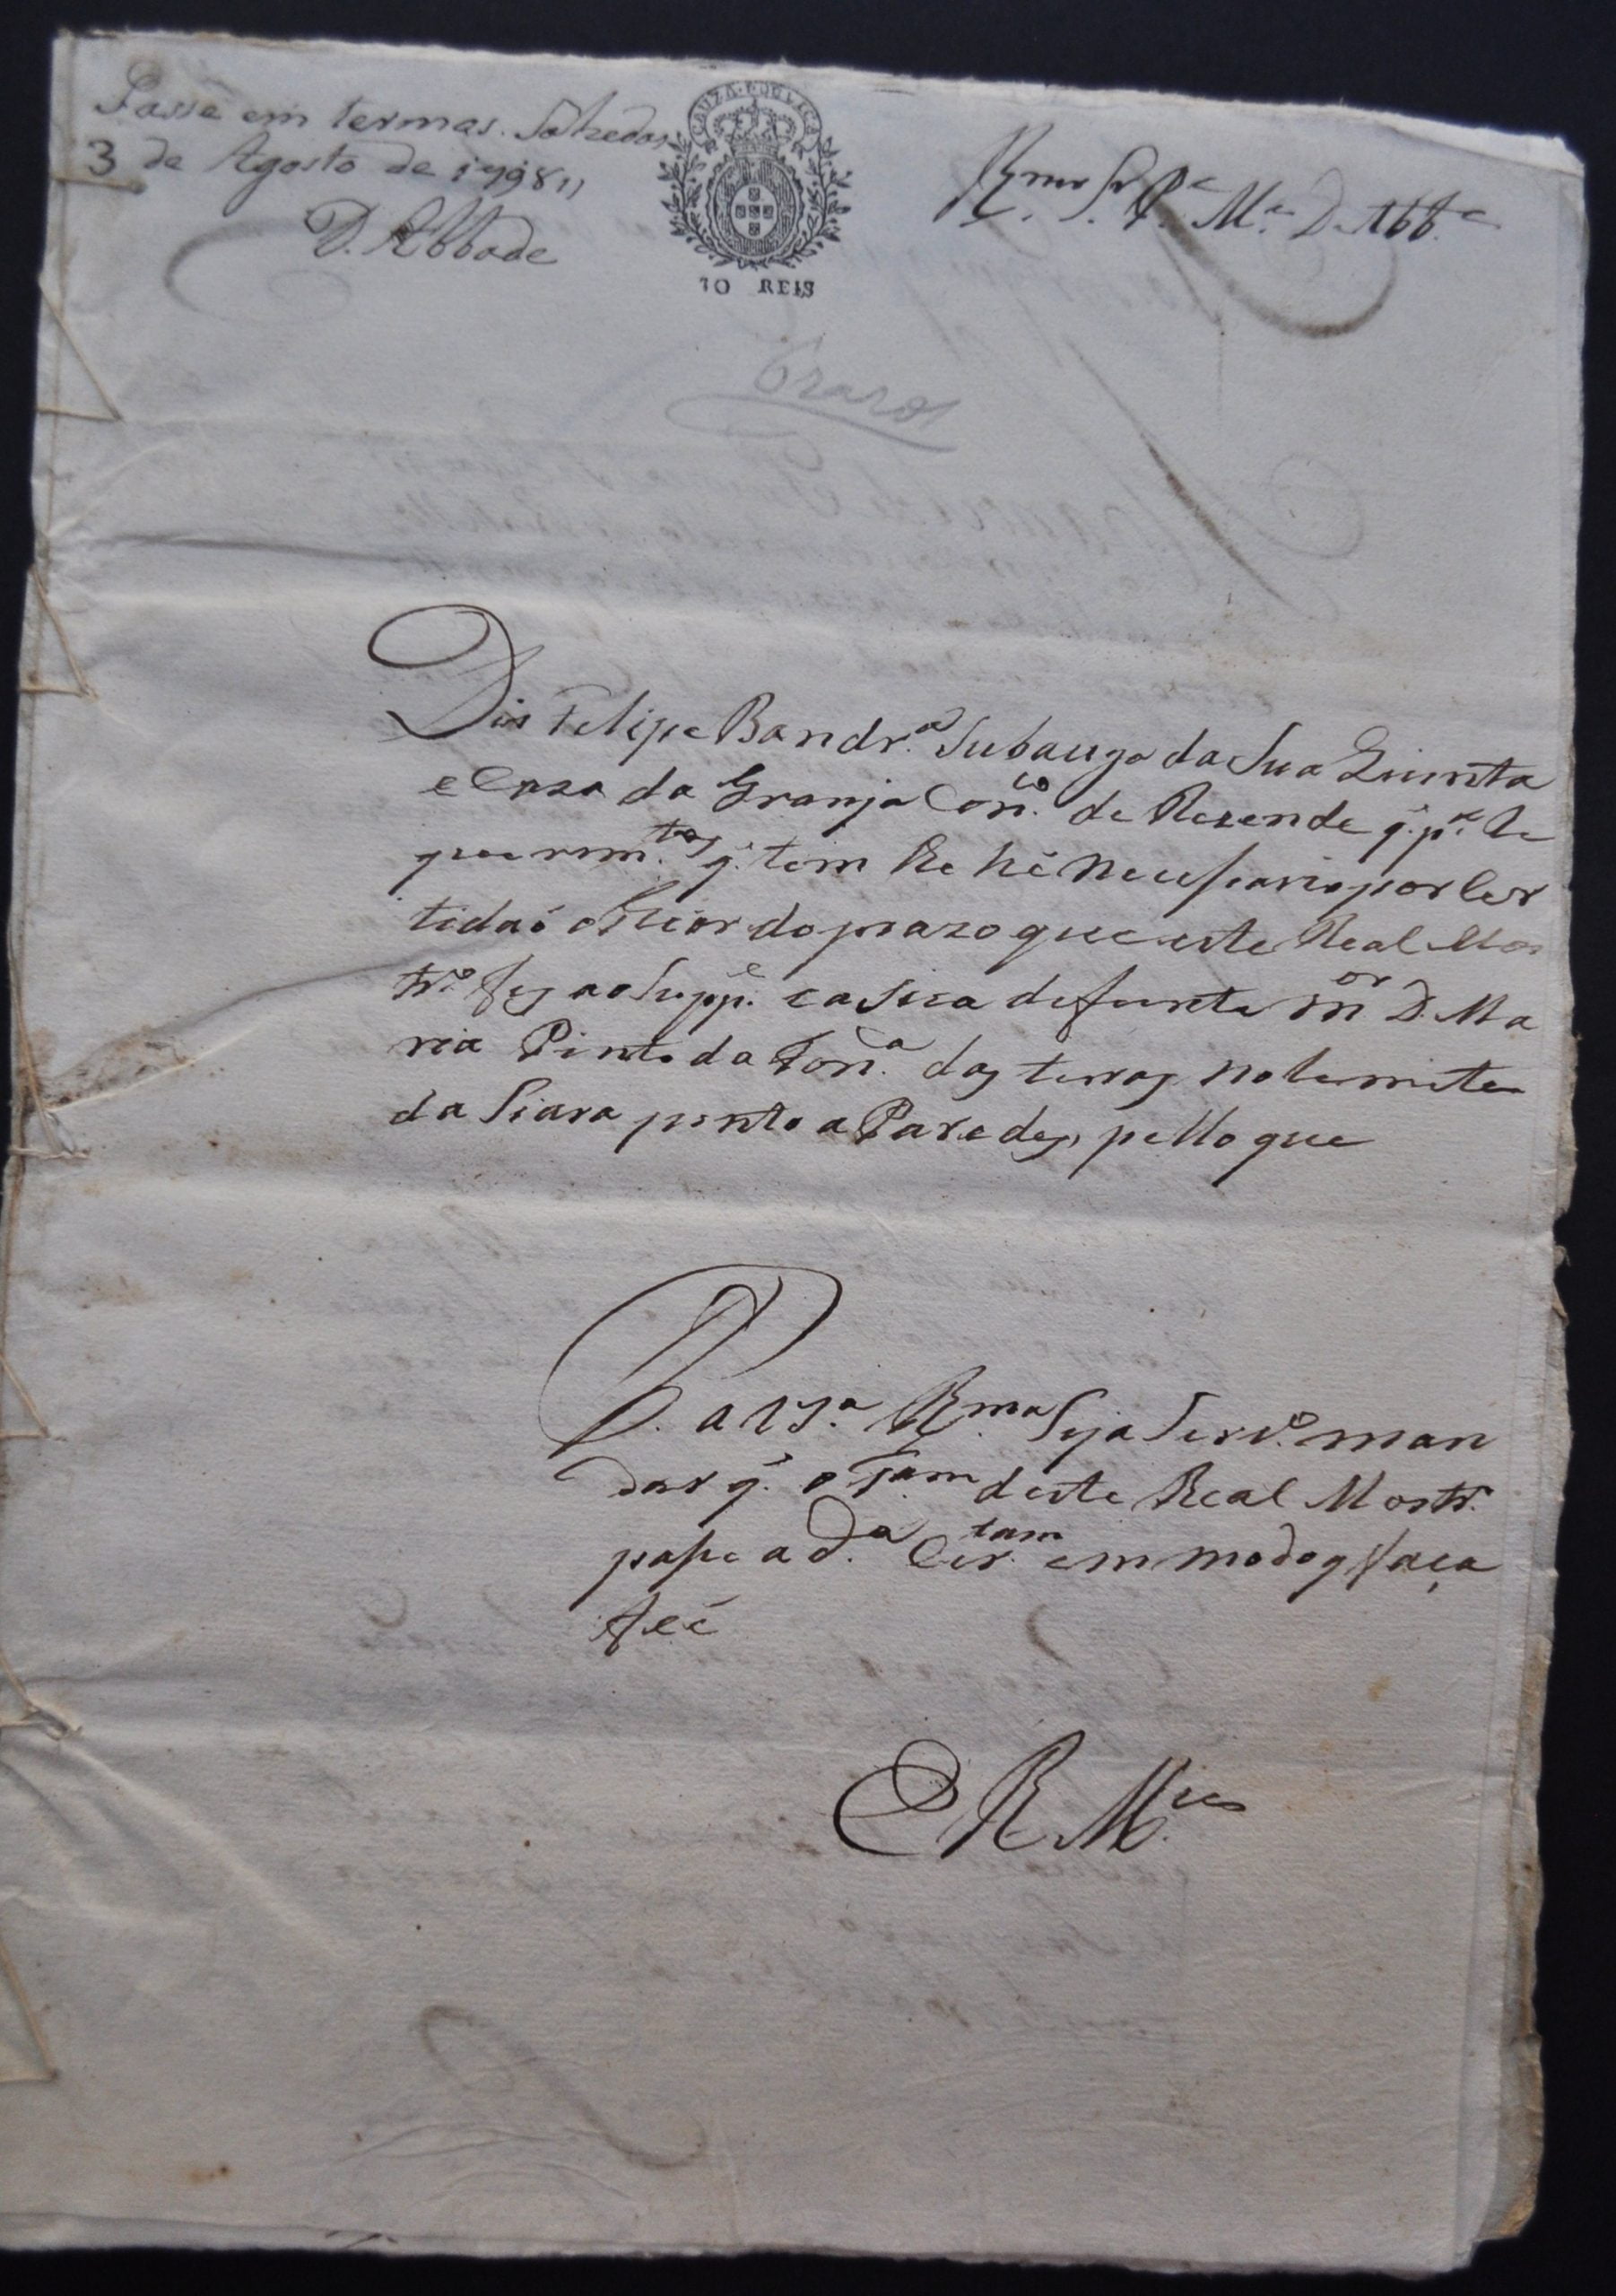 Passe em termos. Salzedas
3 de Agosto de 1798,,
D. Abbade
CAUZA PUBLICA
10 REIS
R.mo S.r P.e M.e D. Abb.e
Prazo
Dis Felipe Bandr.a Subauya da Sua Quinta
e Caza da Granja Con.co de Rezende q. p.a Re
querim.tos q. tem lhe hé necessario por Cer
tidaó o Theor do prazo que este Real Mos
tr.o fez ao Supp.e e a Sua defunta m.or D. Ma
ria Pinto da Fon.a das terras no lemite
da Siara junto a Paredes, pello que
P. a V.a R.ma Seja Serv.o man
dar q. o deste Real Mostr.o
passe a d.a Cer.tam em modo q faça
feé
E R M.ce